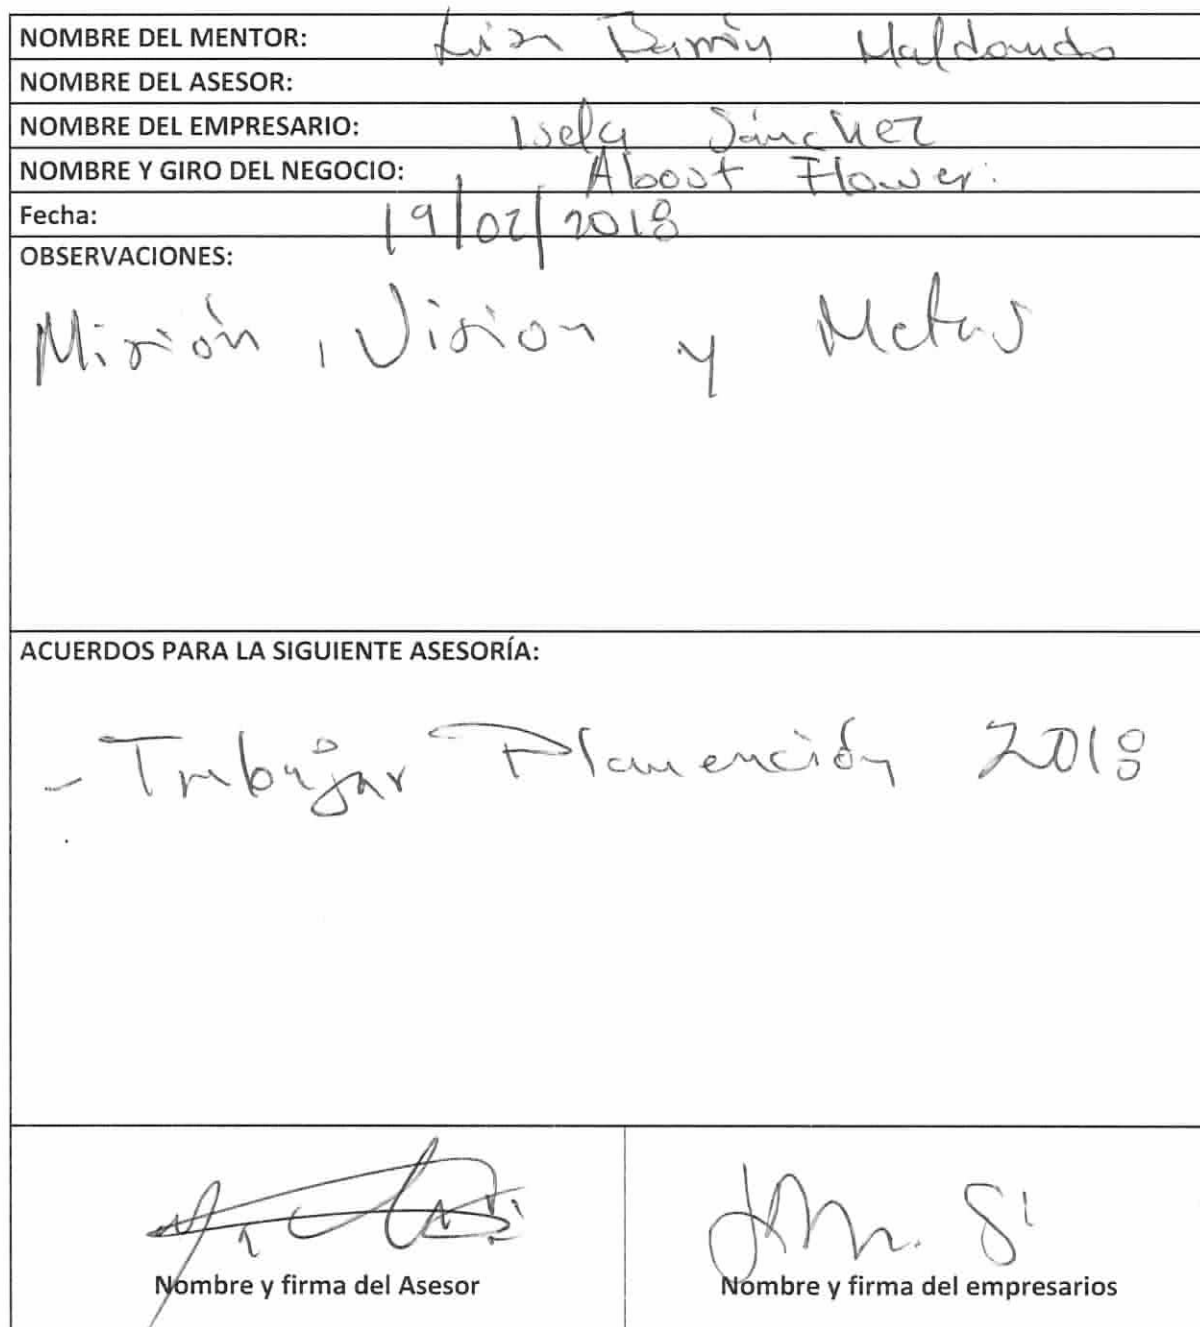 NOMBRE DEL MENTOR: Luis Ramón Maldonado
NOMBRE DEL ASESOR:
NOMBRE DEL EMPRESARIO: Isela Sánchez
NOMBRE Y GIRO DEL NEGOCIO: About Flower.
Fecha: 19/02/2018
OBSERVACIONES:
Misión, Vision y Metas
ACUERDOS PARA LA SIGUIENTE ASESORÍA:
- Trabajar Planeación 2018
Nombre y firma del Asesor
Nombre y firma del empresarios